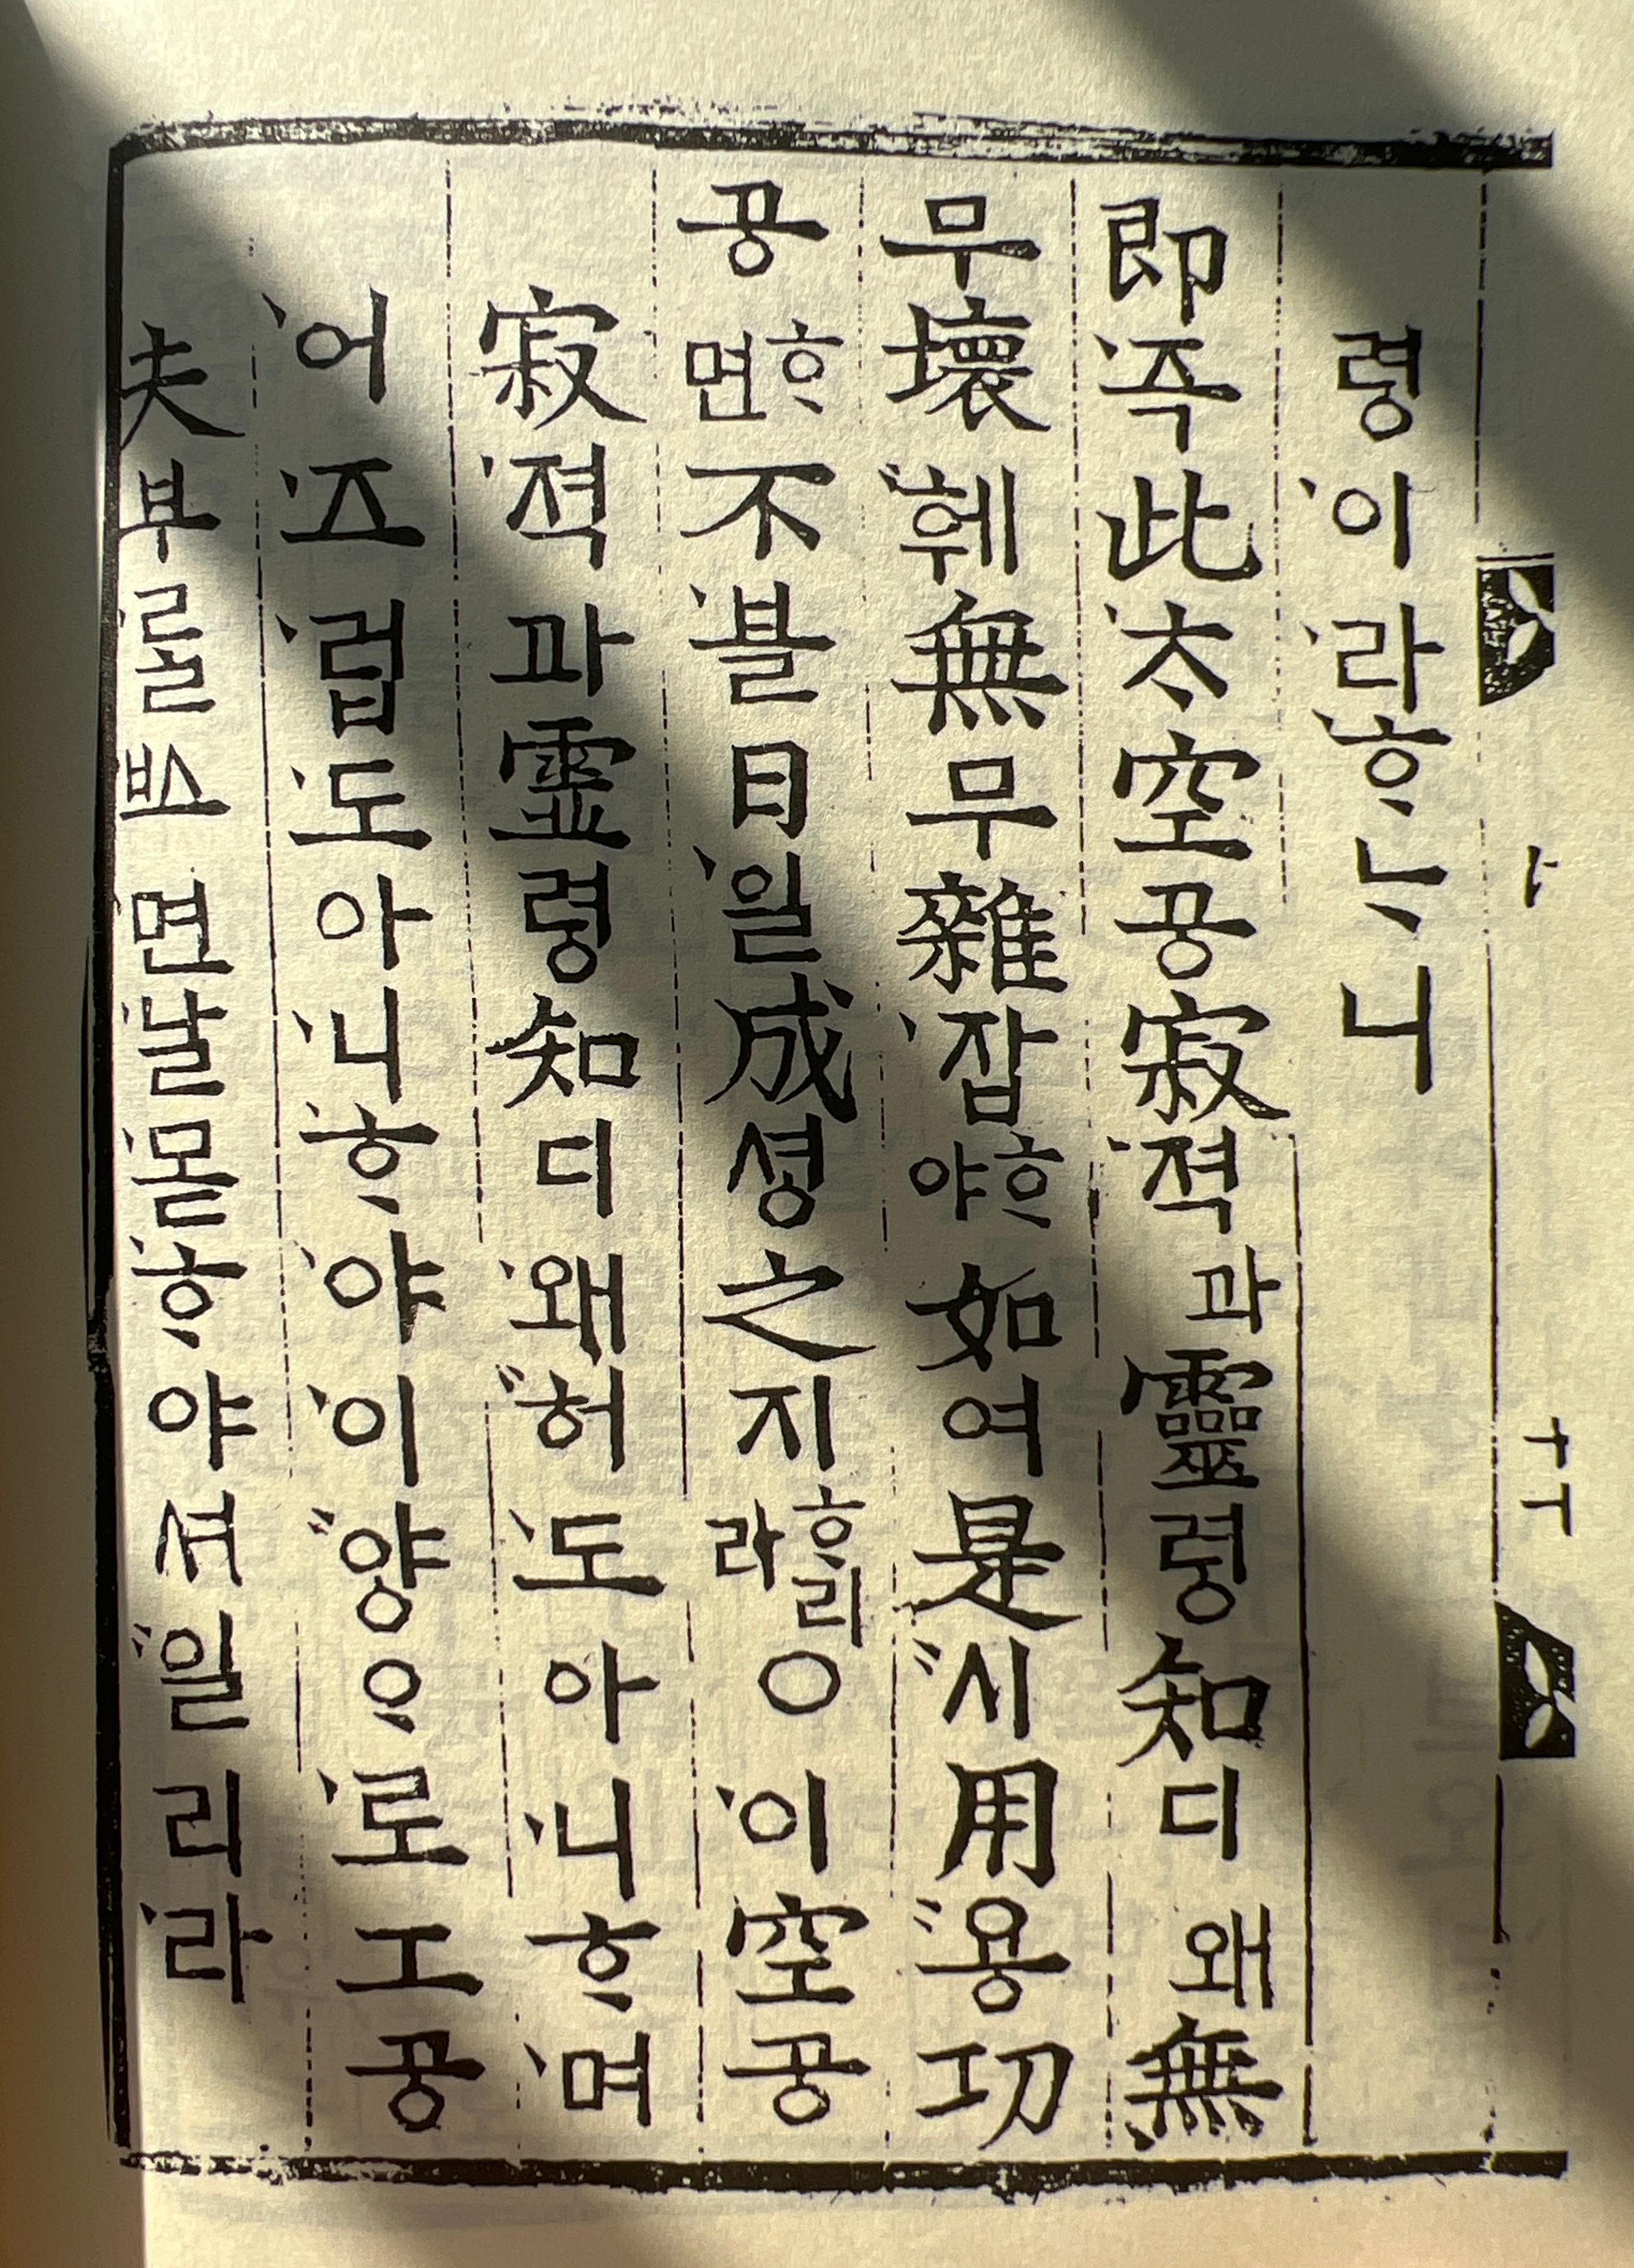 령이라ᄒᆞᄂᆞ니
即즉此ᄎᆞ空공寂적과靈령知디왜無
무壞훼無무雜잡ᄒᆞ야如여是시用용功
공ᄒᆞ면不블日일成셩之지ᄒᆞ리라○이空공
寂적과霊령知디왜허도아니ᄒᆞ며
어즈럽도아니ᄒᆞ야이양ᄋᆞ로工공
夫부ᄅᆞᆯᄡᅳ면날몯ᄒᆞ야셔일리라